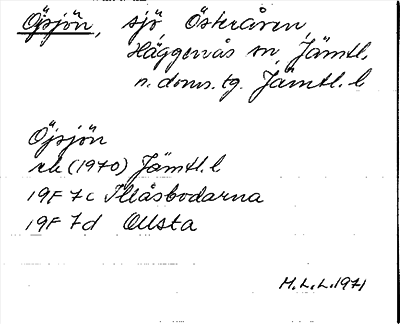 Öjsjön, sjö Österåsen,
Häggenås sn, Jämtl.
n. doms. tg. Jämtl. l
Öjsjön
rk (1970) Jämtl. l
19F 7c Illåsbodarna
19F 7d Ollsta
M.L.L. 1971